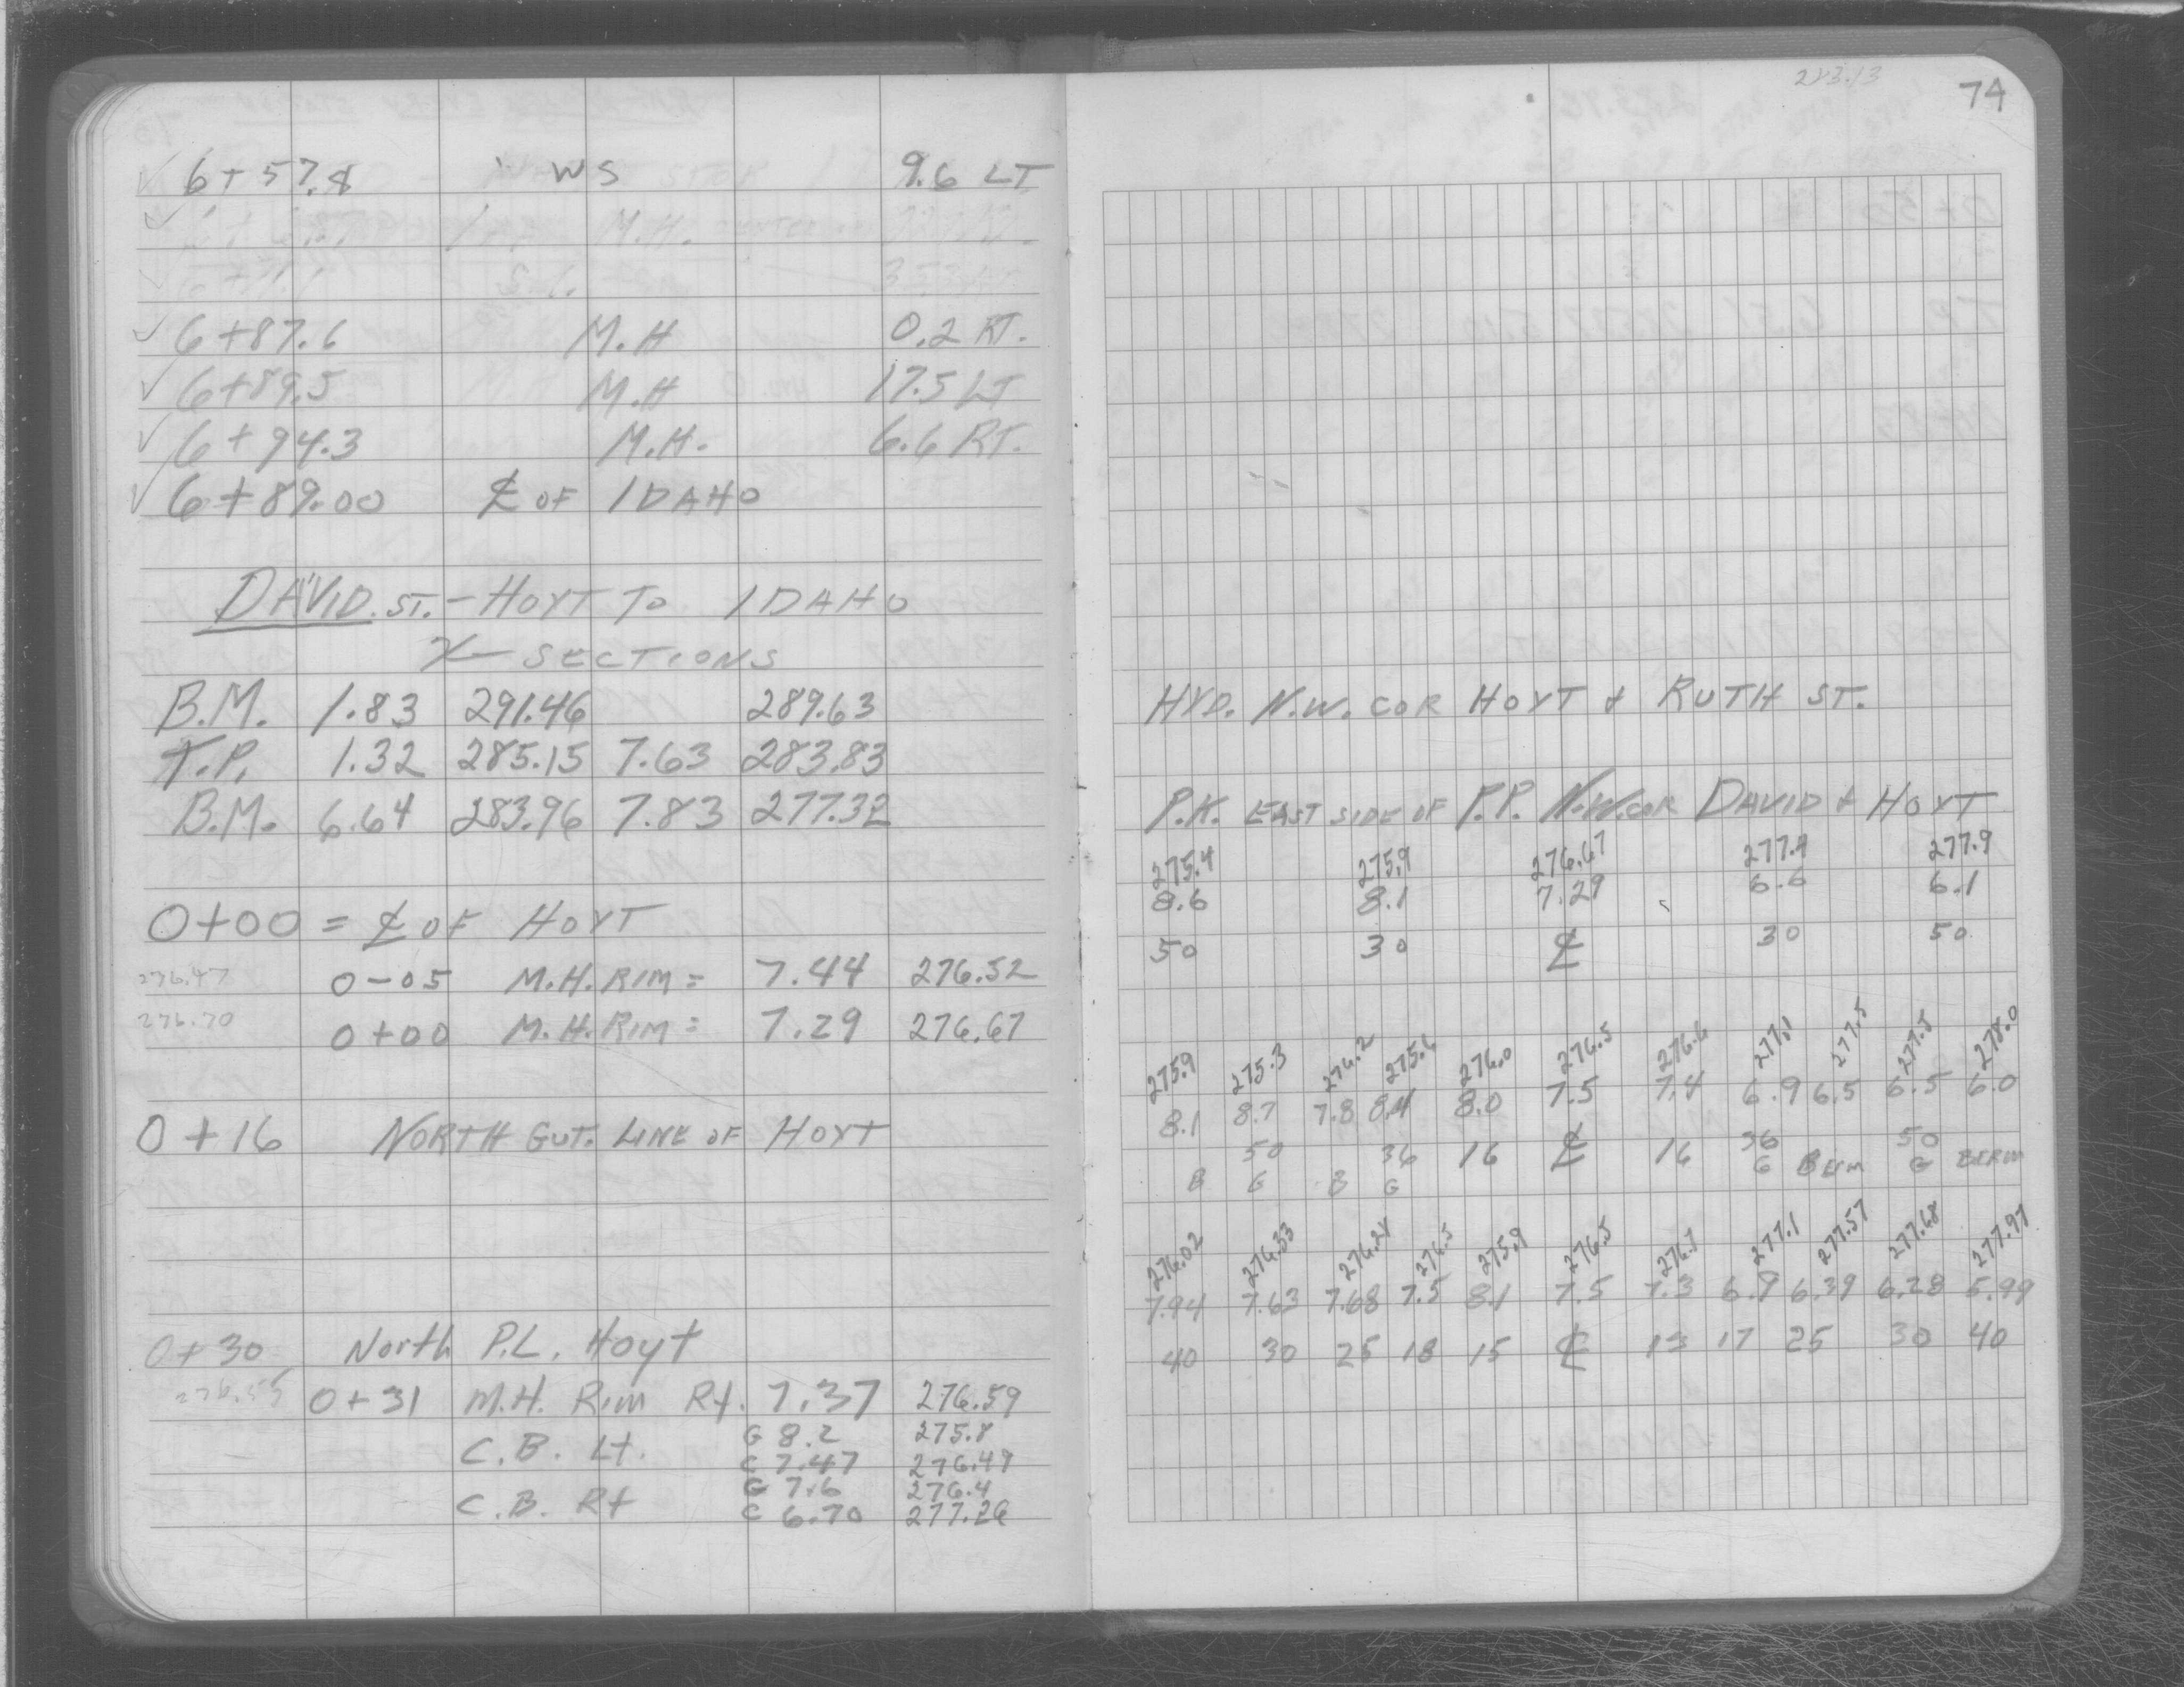 74
✓ 6+57.8 " WS 9.6 LT
✓ M.H.
✓ 6+87.6 M.H 0.2 RT.
✓ 6+89.5 M.H 17.5 LT
✓ 6+94.3 M.H. 6.6 RT.
✓ 6+89.00 ℄ OF IDAHO
DAVID ST. - HOYT TO IDAHO
X-SECTIONS
B.M. 1.83 291.46 289.63
T.P. 1.32 285.15 7.63 283.83
B.M. 6.64 283.96 7.83 277.32
0+00 = ℄ OF HOYT
276.47 0-05 M.H. RIM = 7.44 276.52
276.70 0+00 M.H. RIM = 7.29 276.67
0+16 NORTH GUT. LINE OF HOYT
0+30 North P.L. Hoyt
276.55 0+31 M.H. Rim Rt. 7.37 276.59
C.B. Lt. G 8.2 275.8
C 7.47 276.49
C.B. Rt G 7.6 276.4
C 6.70 277.26
HYD. N.W. COR HOYT & RUTH ST.
P.K. EAST SIDE OF P.P. N.W. COR DAVID & HOYT
275.4 275.9 276.67 277.4 277.9
8.6 8.1 7.29 6.6 6.1
50 30 ℄ 30 50
275.9 275.3 276.2 275.6 276.0 276.5 276.6 277.1 277.5 277.5 278.0
8.1 8.7 7.8 8.4 8.0 7.5 7.4 6.9 6.5 6.5 6.0
50 36 16 ℄ 16 36 50
B G B G G BERM G BERM
276.02 276.33 276.28 276.5 275.9 276.5 276.7 277.1 277.57 277.68 277.97
7.94 7.63 7.68 7.5 8.1 7.5 7.3 6.9 6.39 6.28 5.99
40 30 25 18 15 ℄ 13 17 25 30 40